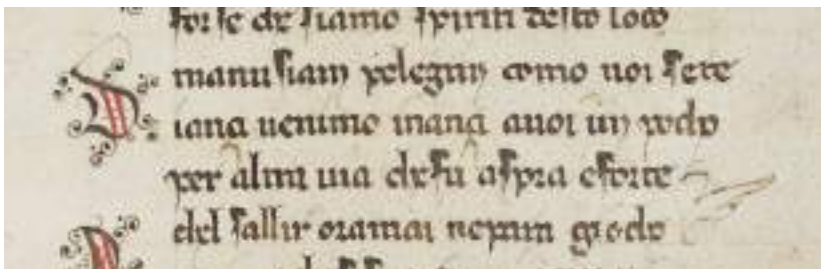 forse che siamo spiriti desto loco
manui siam pelegrin como uoi sete
Dianci uenimo inanci auoi un poco
per altra uia che fu aspra eforte
del sallir oramai neparra gioco